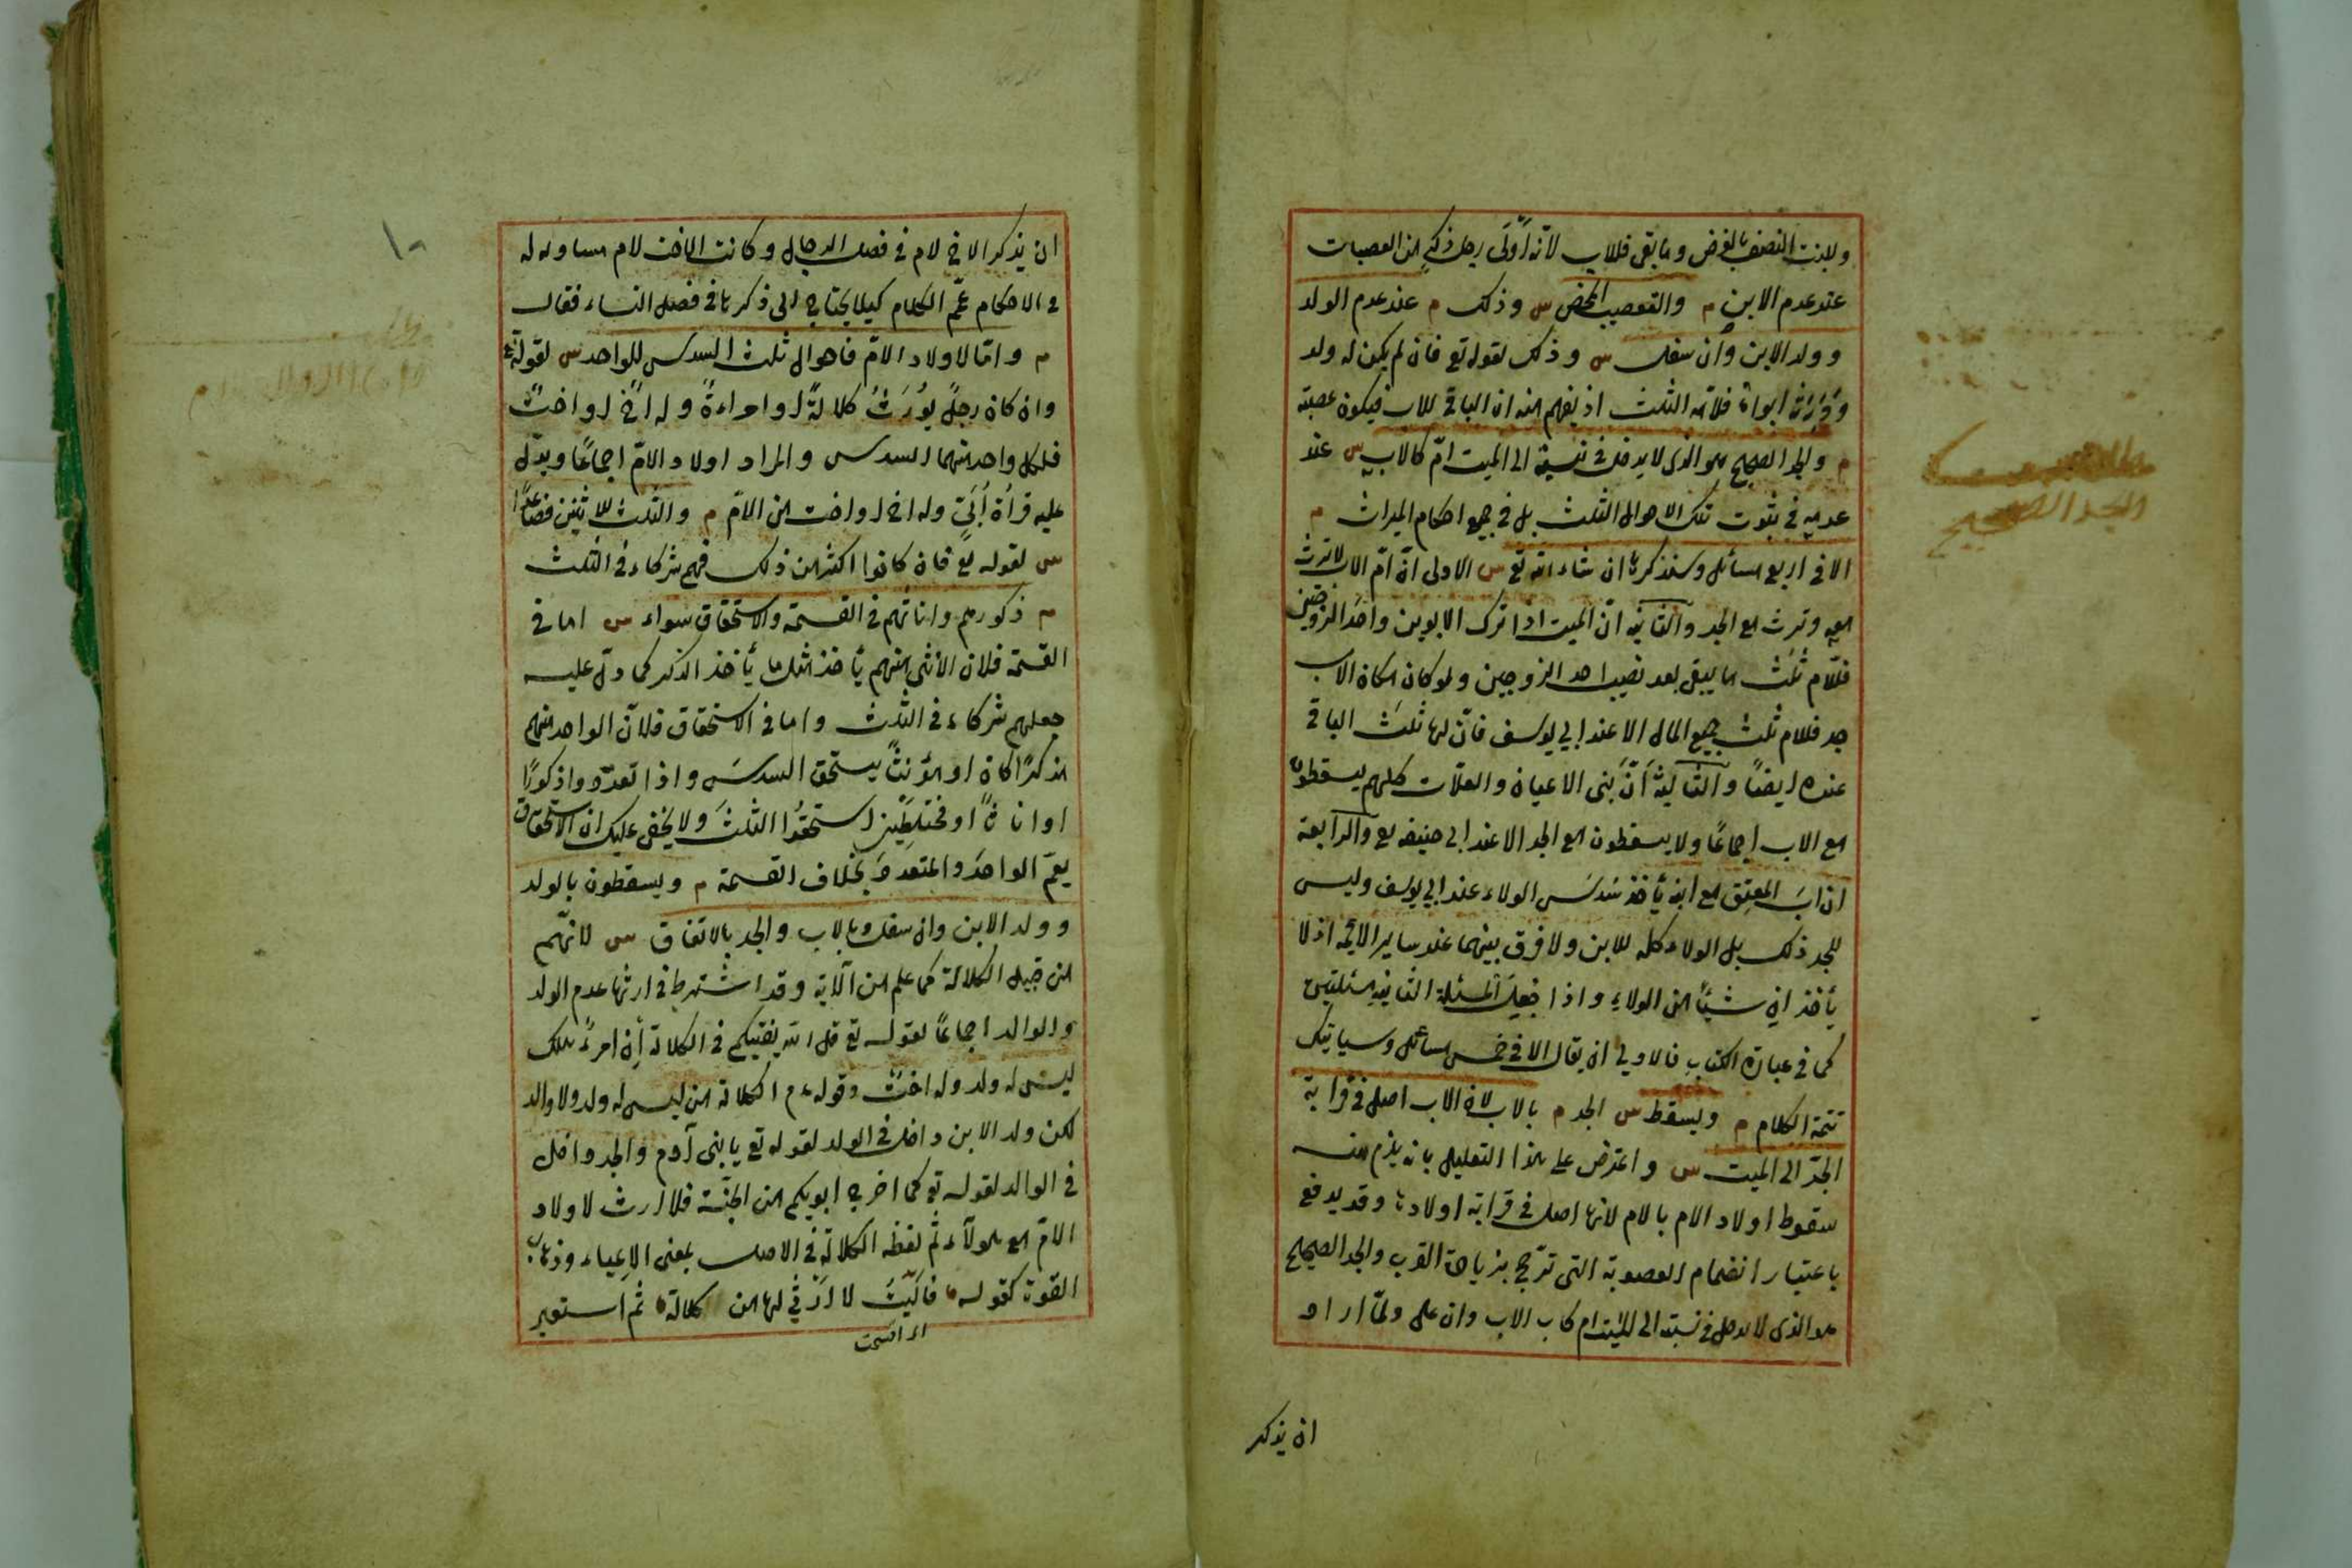 وللبنت النصف بالفرض وما بقى فللاب لانه اَوْلَى رجل ذكرٍ من العصبات
عند عدم الابن م والتعصيب المحض س وذلك م عند عدم الولد
وولد الابن وان سفل س وذلك لقوله تع فان لم يكن له ولد
وورثه ابواه فلامه الثلث اذ يفهم منه ان الباقى للاب فيكون عصبة
م والجد الصحيح هو الذى لا يدخل فى نسبته الى الميت امّ كالاب س عند
عدمه فى ثبوت تلك الاحوال الثلث بل فى جميع احكام الميراث م
الا فى اربع مسائل وسنذكرها ان شاء الله تع س الاولى انّ امّ الاب لا ترث
معه وترث مع الجد والثانية انّ الميت اذا ترك الابوين واحد الزوجين
فللام ثلث ما يبقى بعد نصيب احد الزوجين ولو كان مكان الاب
جد فللام ثلث جميع المال الا عند ابي يوسف فانّ لها ثلث الباقى
عنده ايضًا والثالثة اَنّ بَنى الاعيان والعلّات كلهم يسقطون
مع الاب اجماعًا ولا يسقطون مع الجد الا عند ابى حنيفه رح والرابعة
ان ابَ المعتِق مع ابنه يأخذ سُدسَ الولاء عند ابي يوسف وليس
للجد ذلك بل الولاء كله للابن ولا فرق بينهما عند ساير الائمة اذ لا
يأخذ اىٌ شيئًا من الولاءِ واذا جُعِلَ المسئلة الثانية مسئلتين
كما فى عبارة الكتاب فالاولى ان يقال الا فى خمس مسائل وسياتيك
تتمة الكلام م ويسقط س الجد م بالاب لان الاب اصل فى قرابة
الجدّ الى الميت س واعترض على هذا التعليل بانه يلزم منه
سقوط اولاد الام بالام لانها اصل فى قرابة اولادها وقد يدفع
باعتبار انضمام العصوبة التى ترّجح بزيادة القرب والجد الصحيح
هو الذى لا يدخل فى نسبته الى الميت ام كاب الاب وان على ولمّا اراد
ان يذكر
والجد الصحيح
١٠
ان يذكر الاخ لام فى فصل الرجال وكانت الاخت لام مساوية له
فى الاحكام عمّ الكلام كيلا يحتاج الى ذكرها فى فصل النساء فقال
م وامّا لاولاد الامّ فاحوال ثلث السدس للواحد س لقوله تع
وان كان رجلٌ يُورَثُ كلالةً او امراءةً وله اخٌ او اختٌ
فلكل واحد منهما السدس والمراد اولاد الامّ اجماعًا ويدّل
عليه قراءة اُبَىّ وله اخ او اخت من الامّ م والثلث للاثنين فصاعدًا
س لقوله تع فان كانوا اكثر من ذلك فهم شركاء فى الثلث
م ذكورهم واناثهم فى القسمة والاستحقاق سواء س اما فى
القسمة فلان الانثى منهم يأخذ مثل ما يأخذ الذكر كما دلّ عليه
جعلهم شركاء فى الثلث واما فى الاستحقاق فلانّ الواحد منهم
مذكرًا كان او مؤنثًا يستحق السدسَ واذا تعدّدوا ذكورًا
او اناثًا او مختلطِيْن استحقُوا الثلثَ ولا يخفى عليك ان الاستحقاق
يعمّ الواحدَ والمتعددَ بخلاف القسمة م ويسقطون بالولد
وولد الابن وان سفل وبالاب والجد بالاتفاق س لانهّم
من قبيل الكلالة كما علم من الآية وقد اشترط فى ارثها عدم الولد
والوالد اجماعًا لقوله تع قل الله يفتيكم فى الكلالة إن امرءٌ هلك
ليس له ولد وله اختٌ وقوله ءم الكلالة من ليس له ولد ولا والد
لكن ولد الابن داخل فى الولد لقوله تع يا بنى آدم والجد داخل
فى الوالد لقوله تع كما اخرج ابويكم من الجنّة فلا ارث لاولاد
الامّ مع هولآء ثم لفظ الكلالة فى الاصل بمعنى الاعياء وذهاب
القوة كقوله فآلَيْتُ لا اَرْثى لها من كلالة ثم استعير